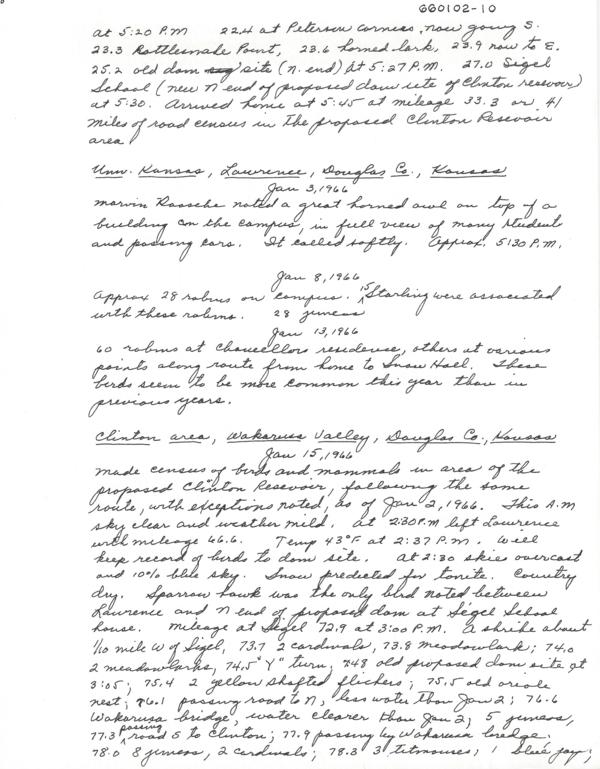 660102-10
at 5:20 P.M   22.4 at Peterson Corners, now going S.
23.3 Rattlesnake Point, 23.6 horned lark, 23.9 now to E.
25.2 old dam site (N. end) at 5:27 P.M.  27.0 Sigel
School (new N end of proposed dam site of Clinton resevoir)
at 5:30.  Arrived home at 5:45 at mileage 33.3 or 41
miles of road census in the proposed Clinton Resevoir
area.
Univ. Kansas, Lawrence, Douglas Co., Kansas
Jan 3, 1966
Marvin noted a great horned owl on top of a
building on the campus, in full view of many students
and passing cars.  It called softly.  Approx. 5:30 P.M.
Jan 8, 1966
Approx 28 robins on campus.  15 Starling were associated
with these robins.   28 juncos
Jan 13, 1966
60 robins at Chancellors residence, others at various
points along route from home to Snow Hall.  These
birds seem to be more common this year than in
previous years.
Clinton area, Wakarusa Valley, Douglas Co., Kansas
Jan 15, 1966
Made census of birds and mammals in area of the
proposed Clinton Resevoir, following the same
route, with exceptions noted, as of Jan 2, 1966.  This A.M
sky clear and weather mild.  At 2:30 P.M left Lawrence
with mileage 66.6.   Temp 43°F at 2:37 P.M.  Will
keep record of birds to dam site.  At 2:30 skies overcast
and 10% blue sky.  Snow predicted for tonite.  Country
dry.  Sparrow hawk was the only bird noted between
Lawrence and N end of proposed dam at Sigel School
house.   Mileage at Sigel 72.9 at 3:00 P.M.  A shrike about
1/10 mile W of Sigel, 73.7 2 cardinals, 73.8 meadowlark; 74.0
2 meadowlarks, 74.5 "Y" turn; 74.8 old proposed dam site at
3:05; 75.4 2 yellow shafted flickers; 75.5 old oriole
nest; 76.1 passing road to N, less water than Jan 2; 76.6
Wakarusa bridge, water clearer than Jan 2; 5 juncos,
77.3 passing road S to Clinton; 77.9 passing by Wakarusa bridge.
78.0 8 juncos, 2 cardinals; 78.3 3 titmouses; 1 blue jay;